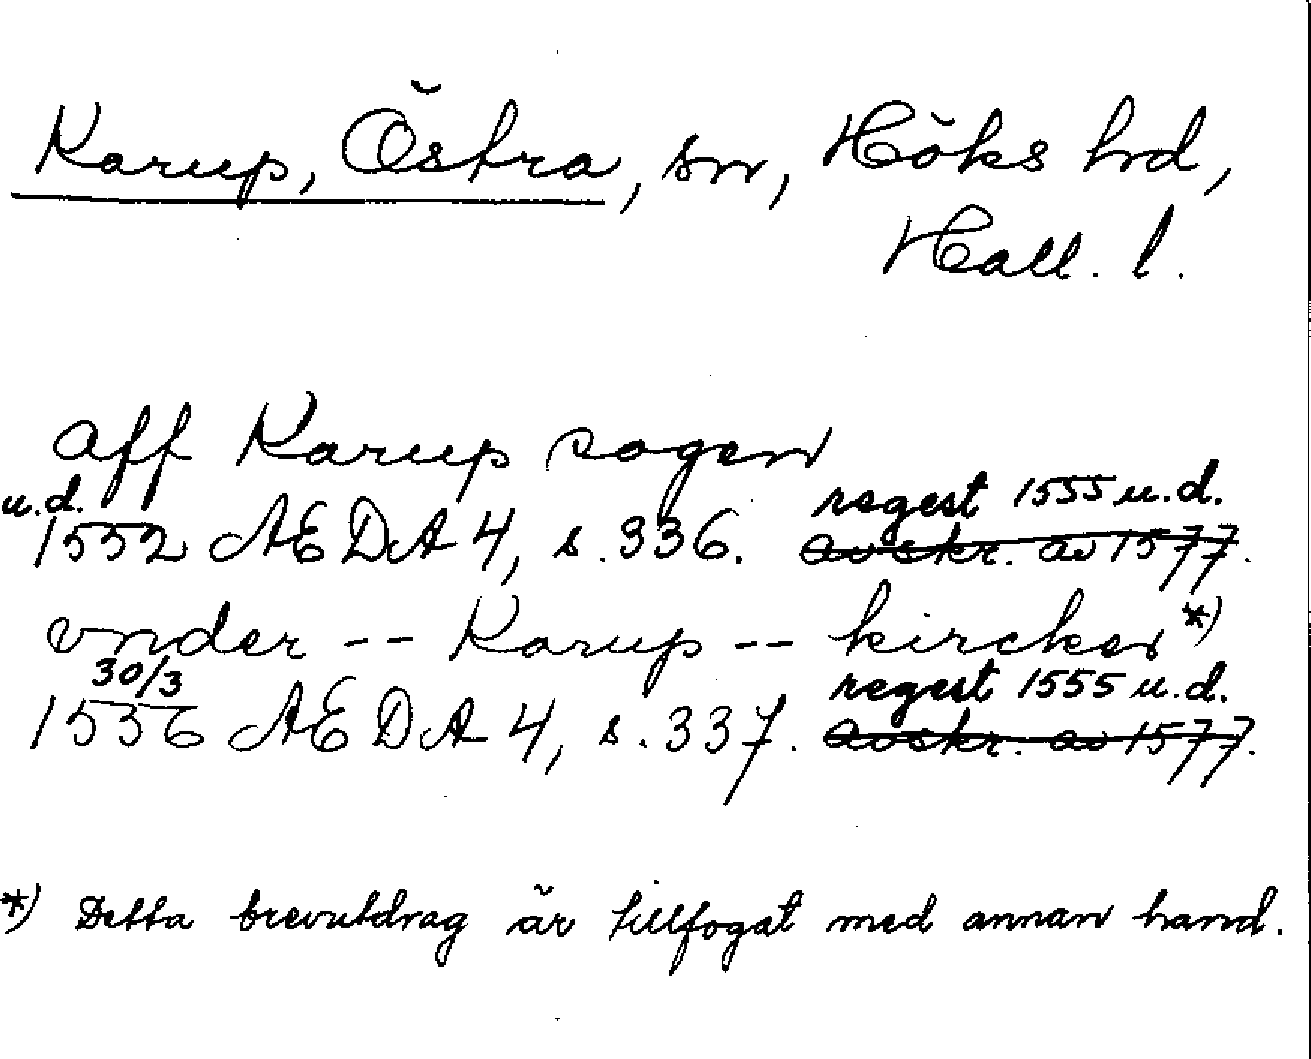 Karup, Östra, sn, Höks hd,
Hall. l.
aff Karup sogen
u.d. regest 1555 u.d.
1552 AEDA 4, s. 336. avskr. av 1577.
vnder -- Karup -- kircker *)
30/3 regest 1555 u.d.
1536 AEDA 4, s. 337. avskr. av 1577.
*) Detta brevutdrag är tillfogat med annan hand.